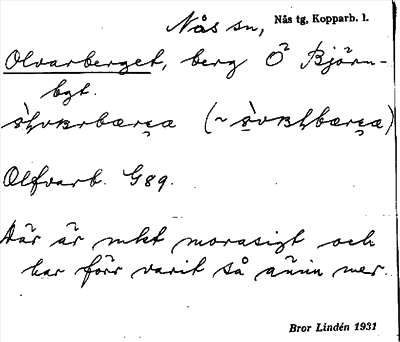 Nås sn, Nås tg, Kopparb. l.
Olvarberget, berg Ö Björn-
bgt.
Olfvarb. G89.
Här är mkt morasigt och
har förr varit så ännu mer.
Bror Lindén 1931